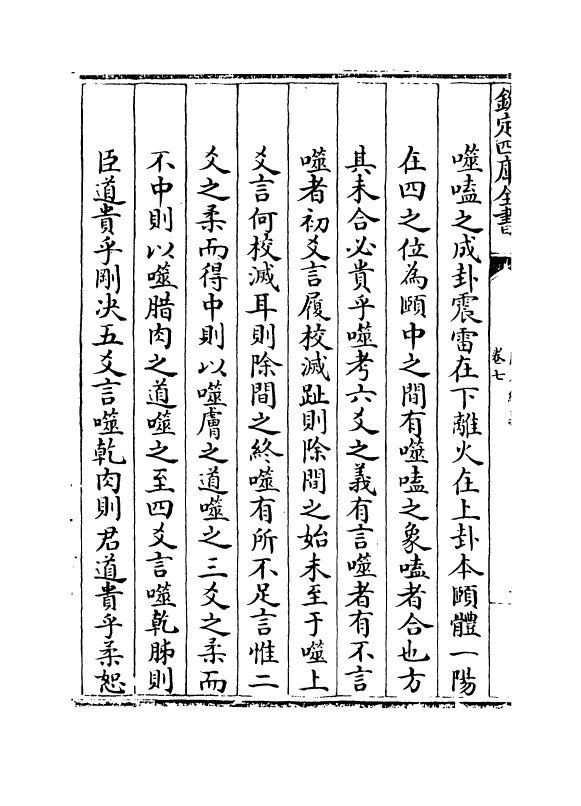 欽定四庫全書
卷七
噬嗑之成卦震雷在下離火在上卦本頤體一陽
在四之位為頤中之間有噬嗑之象嗑者合也方
其未合必貴乎噬考六爻之義有言噬者有不言
噬者初爻言履校滅趾則除間之始未至于噬上
爻言何校滅耳則除間之終噬有所不足言惟二
爻之柔而得中則以噬膚之道噬之三爻之柔而
不中則以噬腊肉之道噬之至四爻言噬乾胏則
臣道貴乎剛决五爻言噬乾肉則君道貴乎柔恕